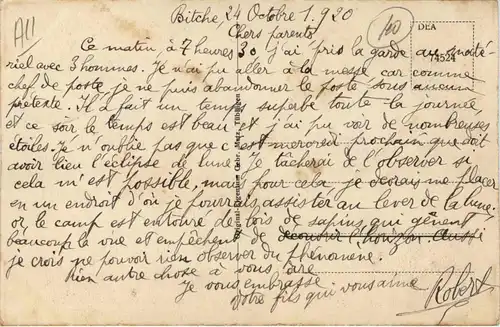 All
100
DEA
74524
Bitche, 24 Octobre 1.920
Chers parents
Ce matin, à 7 heures 30 j'ai pris la garde au maté-
riel avec 3 hommes. Je n'ai pu aller à la messe car comme
chef de poste je ne puis abandonner le poste sous aucun
prétexte. Il a fait un temps superbe toute la journée
et ce soir le temps est beau et j'ai pu voir de nombreuses
étoiles. Je n'oublie pas que c'est mercredi prochain que doit
avoir lieu l'éclipse de lune. Je tâcherai de l'observer si
cela m'est possible, mais pour cela je devrais me placer
en un endroit d'où je pourrais assister au lever de la lune.
or le camp est entouré de bois de sapins qui gênent
beaucoup la vue et empêchent de découvrir l'horizon. Aussi
je crois ne pouvoir rien observer du phénomène.
Rien autre chose à vous dire
Je vous embrasse
Votre fils qui vous aime
Robert